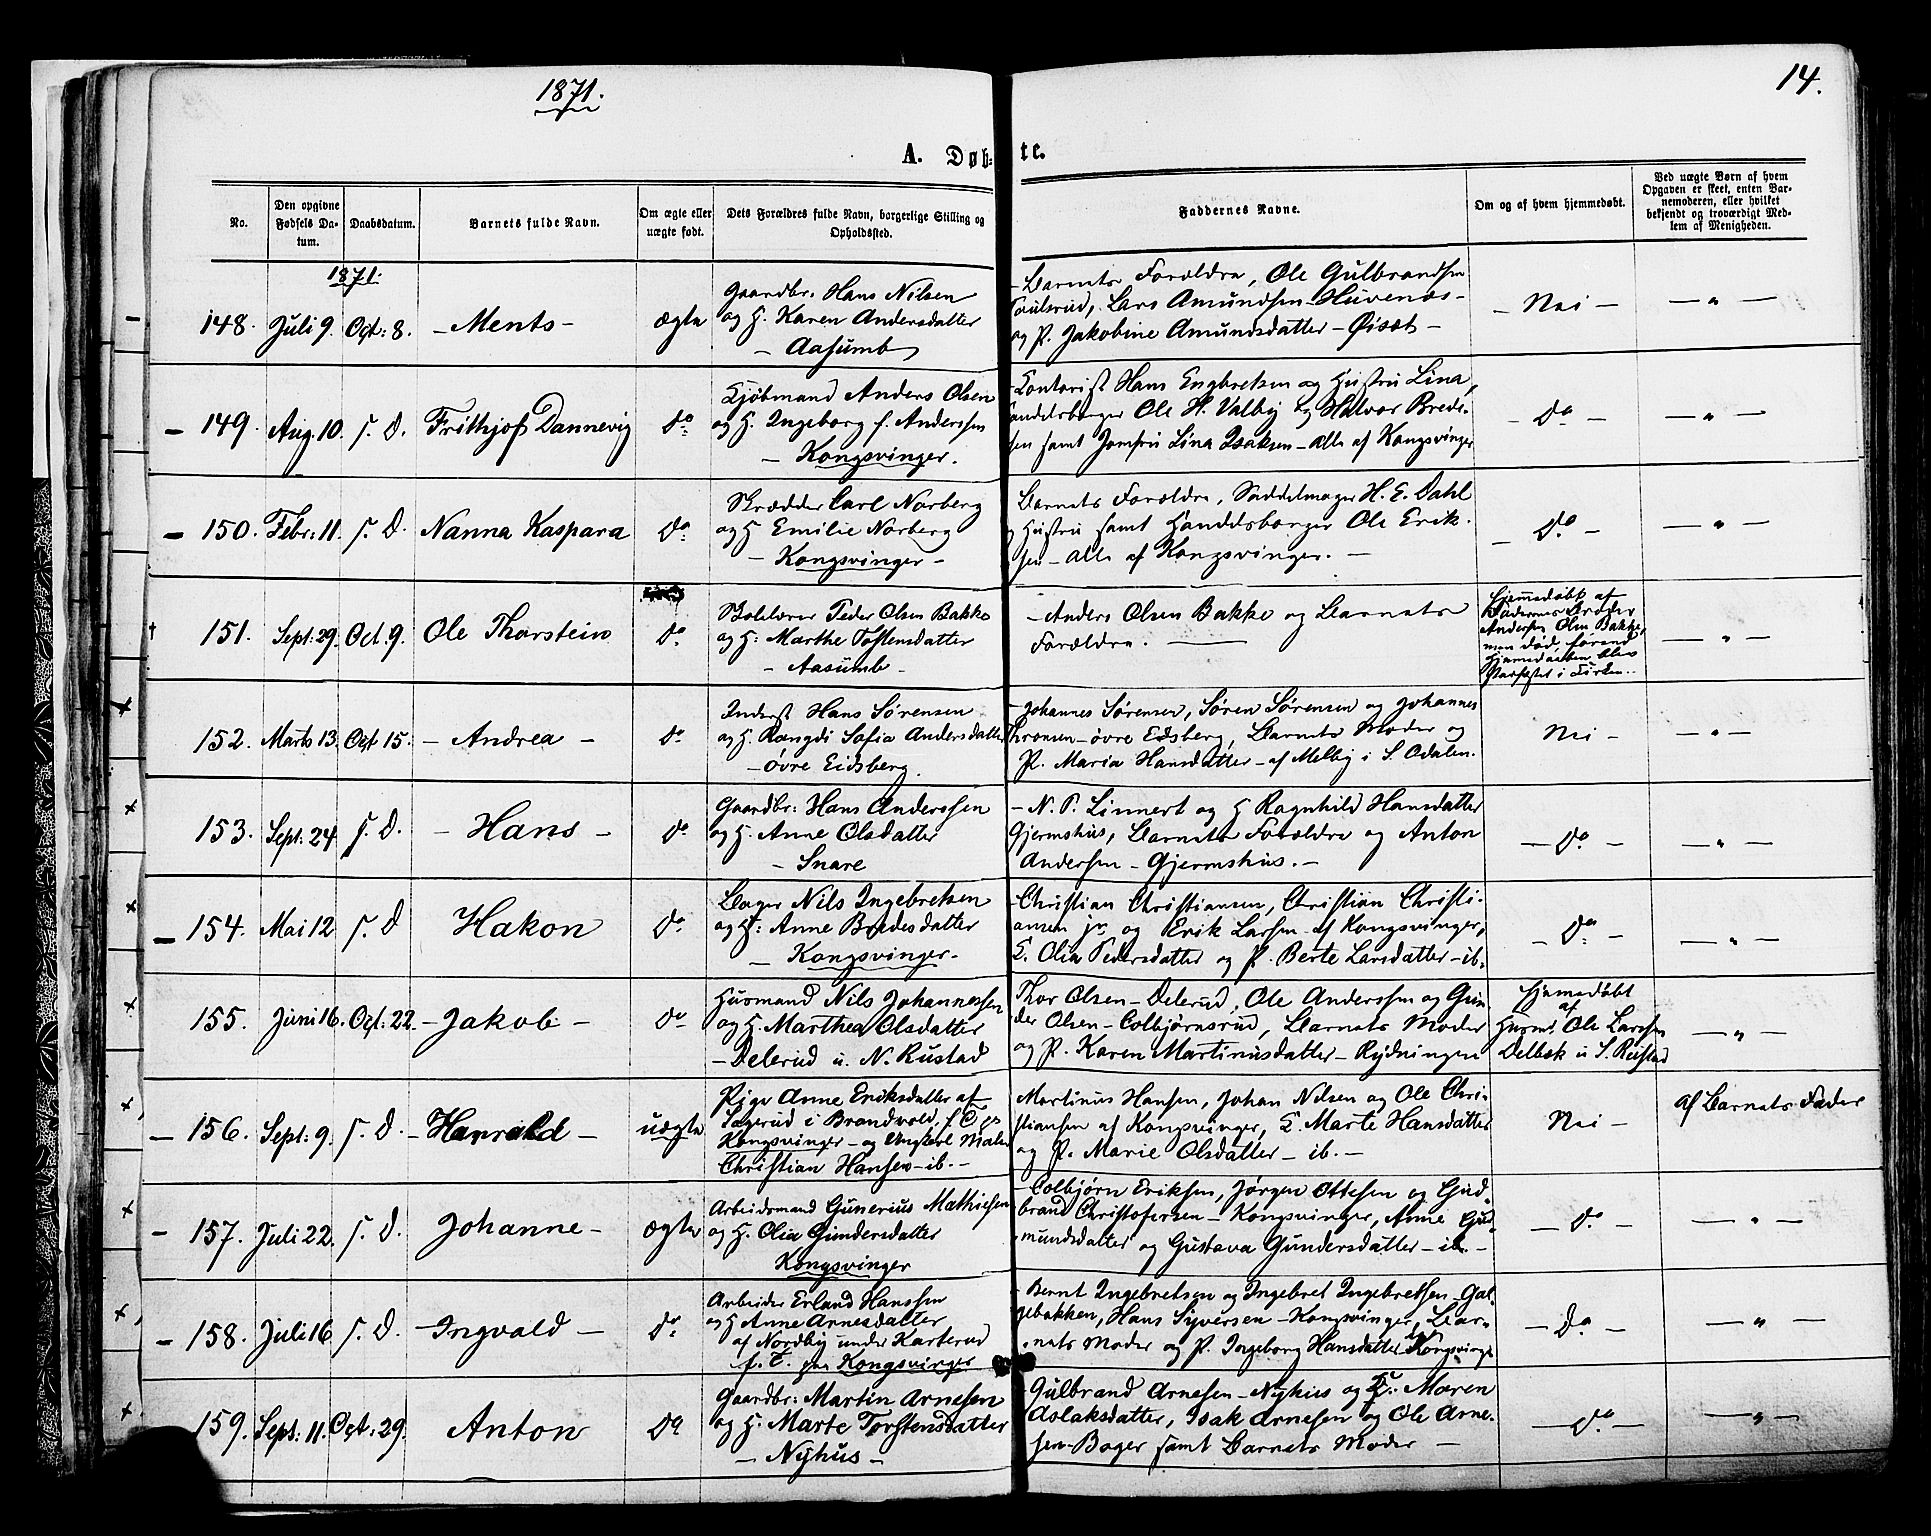 1871.
14.
A. Døb-
te.
No.
Den opgivne Fødsels Datum.
Daabsdatum.
Barnets fulde Navn.
Om ægte eller uægte født.
Dets Forældres fulde Navn, borgerlige Stilling og Opholdssted.
Faddernes Navne.
Om og af hvem hjemmedøbt.
Ved uægte Børn af hvem Opgaven er skeet, enten Barnemoderen, eller hvilket bekjendt og troværdigt Medlem af Menigheden.
1871.
148. Juli 9. Oct: 8. – Ments – ægte
Gaardbr: Hans Nilsen
og H. Karen Andersdatter
– Aasumb
– Barnets Forældre, Ole Gulbrandsen
Lars Amundsen – Huvenæs –
og P. Jakobine Amundsdatter – Øiset –
– Nei – — " —
149. Aug. 10. s. D. Frithjof Dannevig do
Kjøbmand Anders Olsen
og H. Ingeborg f. Anderssen
– Kongsvinger.
– Contorist Hans Engbretsen og Hustru Lina,
Handelsborger Ole H. Valby og Halvor Brede-
sen samt Jomfru Lina Isaksen – alle af Kongsvinger
– do – — " —
150. Febr: 11. s. D. Nanna Kaspara do
Skrædder Carl Norberg
og H Emilie Norberg
– Kongsvinger –
Barnets Forældre, Saddelmager H. E. Dahl
og Hustru samt Handelsborger Ole Erik-
sen – alle af Kongsvinger. –
– do – — " —
151. Sept: 29. Oct. 9. Ole Thorstein do
Skolelærer Peder Olsen Bakke
og H: Marthe Tostensdatter
– Aasumb –
– Anders Olsen Bakke og Barnets
Forældre. —
Hjemmedøbt af
Faderens Broder
Andersen Olsen Bakke,
men død, førend
Hjemmedaaben blev
stadfæstet i Kirken.
— " —
152. Marts 13. Oct 15. – Andrea – do
Inderst Hans Sørensen
og H. Rangdi Sofia Andersdatter
– øvre Eidsberg.
– Johannes Sørensen, Søren Sørensen og Johannes
Thronsen – øvre Edsberg, Barnets Moder og
P. Maria Hansdatter – af Melby i S. Odalen.
Nei – — " —
153. Sept: 24. s. D. – Hans – do
Gaardbr: Hans Anderssen
og H. Anne Olsdatter
– Snare
– N. P. Linnert og H Ragnhild Hansdatter
Gjermshus, Barnets Forældre og Anton
Andersen – Gjermshus. –
– do. – — " —
154. Mai 12 s. D Hakon do
Bager Nils Ingebretsen
og H: Anne Bredesdatter
– Kongsvinger –
– Christian Christiansen, Christian Christi-
ansen jr. og Erik Larsen – af Kongsvinger,
E. Olia Pedersdatter og P. Berte Larsdatter – ib.
– do – — " —
155. Juni 16. Oct. 22. – Jakob – do
Husmand Nils Johannessen
og H. Marthea Olsdatter
– Delerud u. N. Rustad
Thor Olsen – Delerud, Ole Anderssen og Gun-
der Olsen – Colbjørnsrud, Barnets Moder
og P. Karen Martinusdatter – Rydningen
Hjemmedøbt
af
Husmd. Ole Larssen
Delbæk u S. Rustad
— " —
156. Sept: 9. s. D. – Harald – uægte
Pige Anne Eriksdatter af
Brandvold, f. T. pr
Kongsvinger – og Ungkarl Maler
Christian Hansen – ib. –
Martinus Hansen, Johan Nilsen og Ole Chri-
stiansen af Kongsvinger, E. Marte Hansdatter
og P. Marie Olsdatter – ib. –
Nei –
af Barnets Fader
157. Juli 22. s. D. Johanne – ægte
Arbeidsmand Gunerius Mathiesen
og H. Olia Gundersdatter
Kongsvinger
– Colbjørn Eriksen, Jørgen Ottesen og Gud-
brand Christofersen – Kongsvinger, Anne Gud-
mundsdatter og Gustava Gundersdatter – ib. –
– do – — " —
158. Juli 16. s. D. – Ingvald – do
Arbeider Erland Hanssen
og H Anne Arnesdatter
af Nordby under Karterud
f. T. paa Kongsvinger
– Bernt Ingebretsen og Ingebret Ingebretsen – Gal-
gebakken, Hans Syversen – Kongsvinger, Bar-
nets Moder og P. Ingeborg Hansdatter Kongsvinger
– do – — " —
159. Sept: 11. Oct: 29. Anton do
Gaardbr: Martin Arnesen
og H. Marte Torstensdatter
– Nyhus –
– Gulbrand Arnesen – Nyhus og E: Maren
Aslaksdatter, Isak Arnesen og Ole Arne-
sen – Bager samt Barnets Moder –
– do – — " —